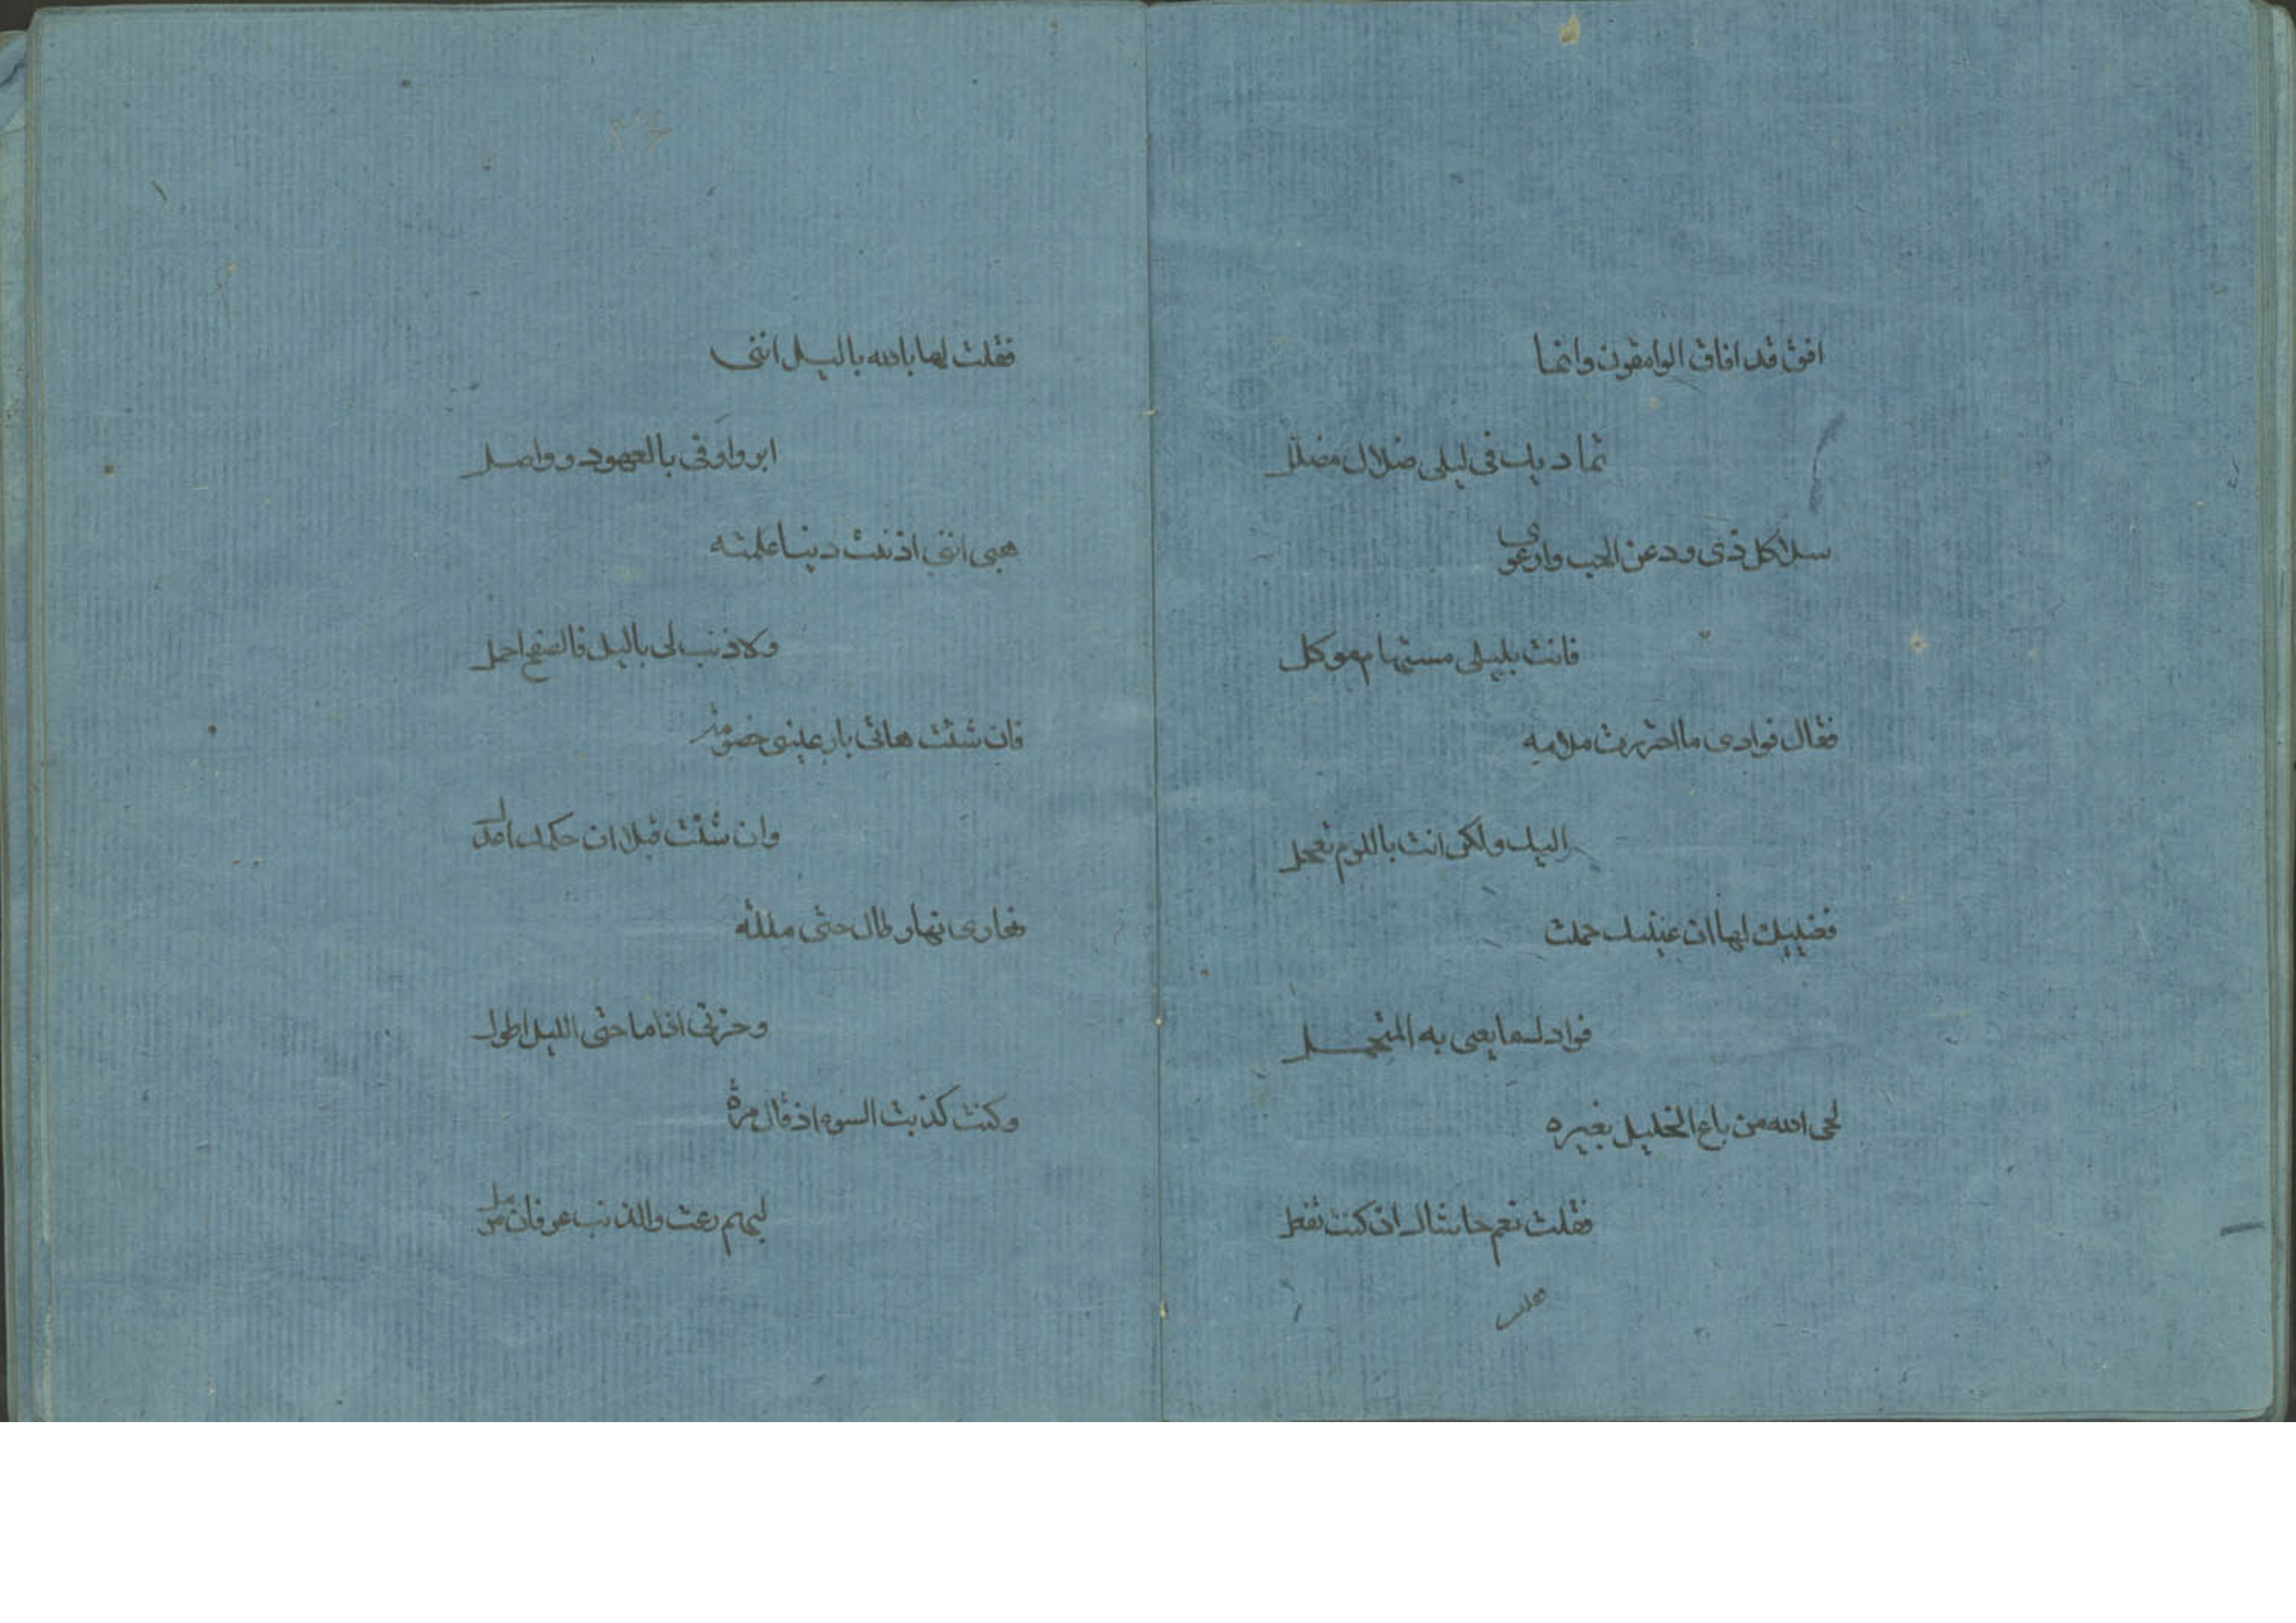 افق قد افاق الوامقون وانما
تماديك فى ليلى ضلال مضلل
سلا كل ذى ود عن الحب وارعوى
فانت بليلى مستهام موكل
فقال فوادى ما اجتررت ملامه
اليك ولكن انت باللوم تعجل
فعينيك لها ان عينيك حملت
فوادك ما يعيى به المتحمل
لحى الله من باع الخليل بغيره
فقلت نعم حاشاك ان كنت تفعل
فقلت
فقلت لها بالله يا ليل اننى
ابر واوفى بالعهود وواصل
هبى اننى اذنبت ذنبا علمته
ولا ذنب لى يا ليل فالصفح اجمل
فان شئت هاتى نازعينى خصومة
وان شئت قبلا ان حكمك اعدل
نهارى نهار طال حتى مللته
وحزنى اذا ما جنى الليل اطول
وكنت كذئب السوء اذ قال مرة
لبهم رعت والذئب غرثان مرمل